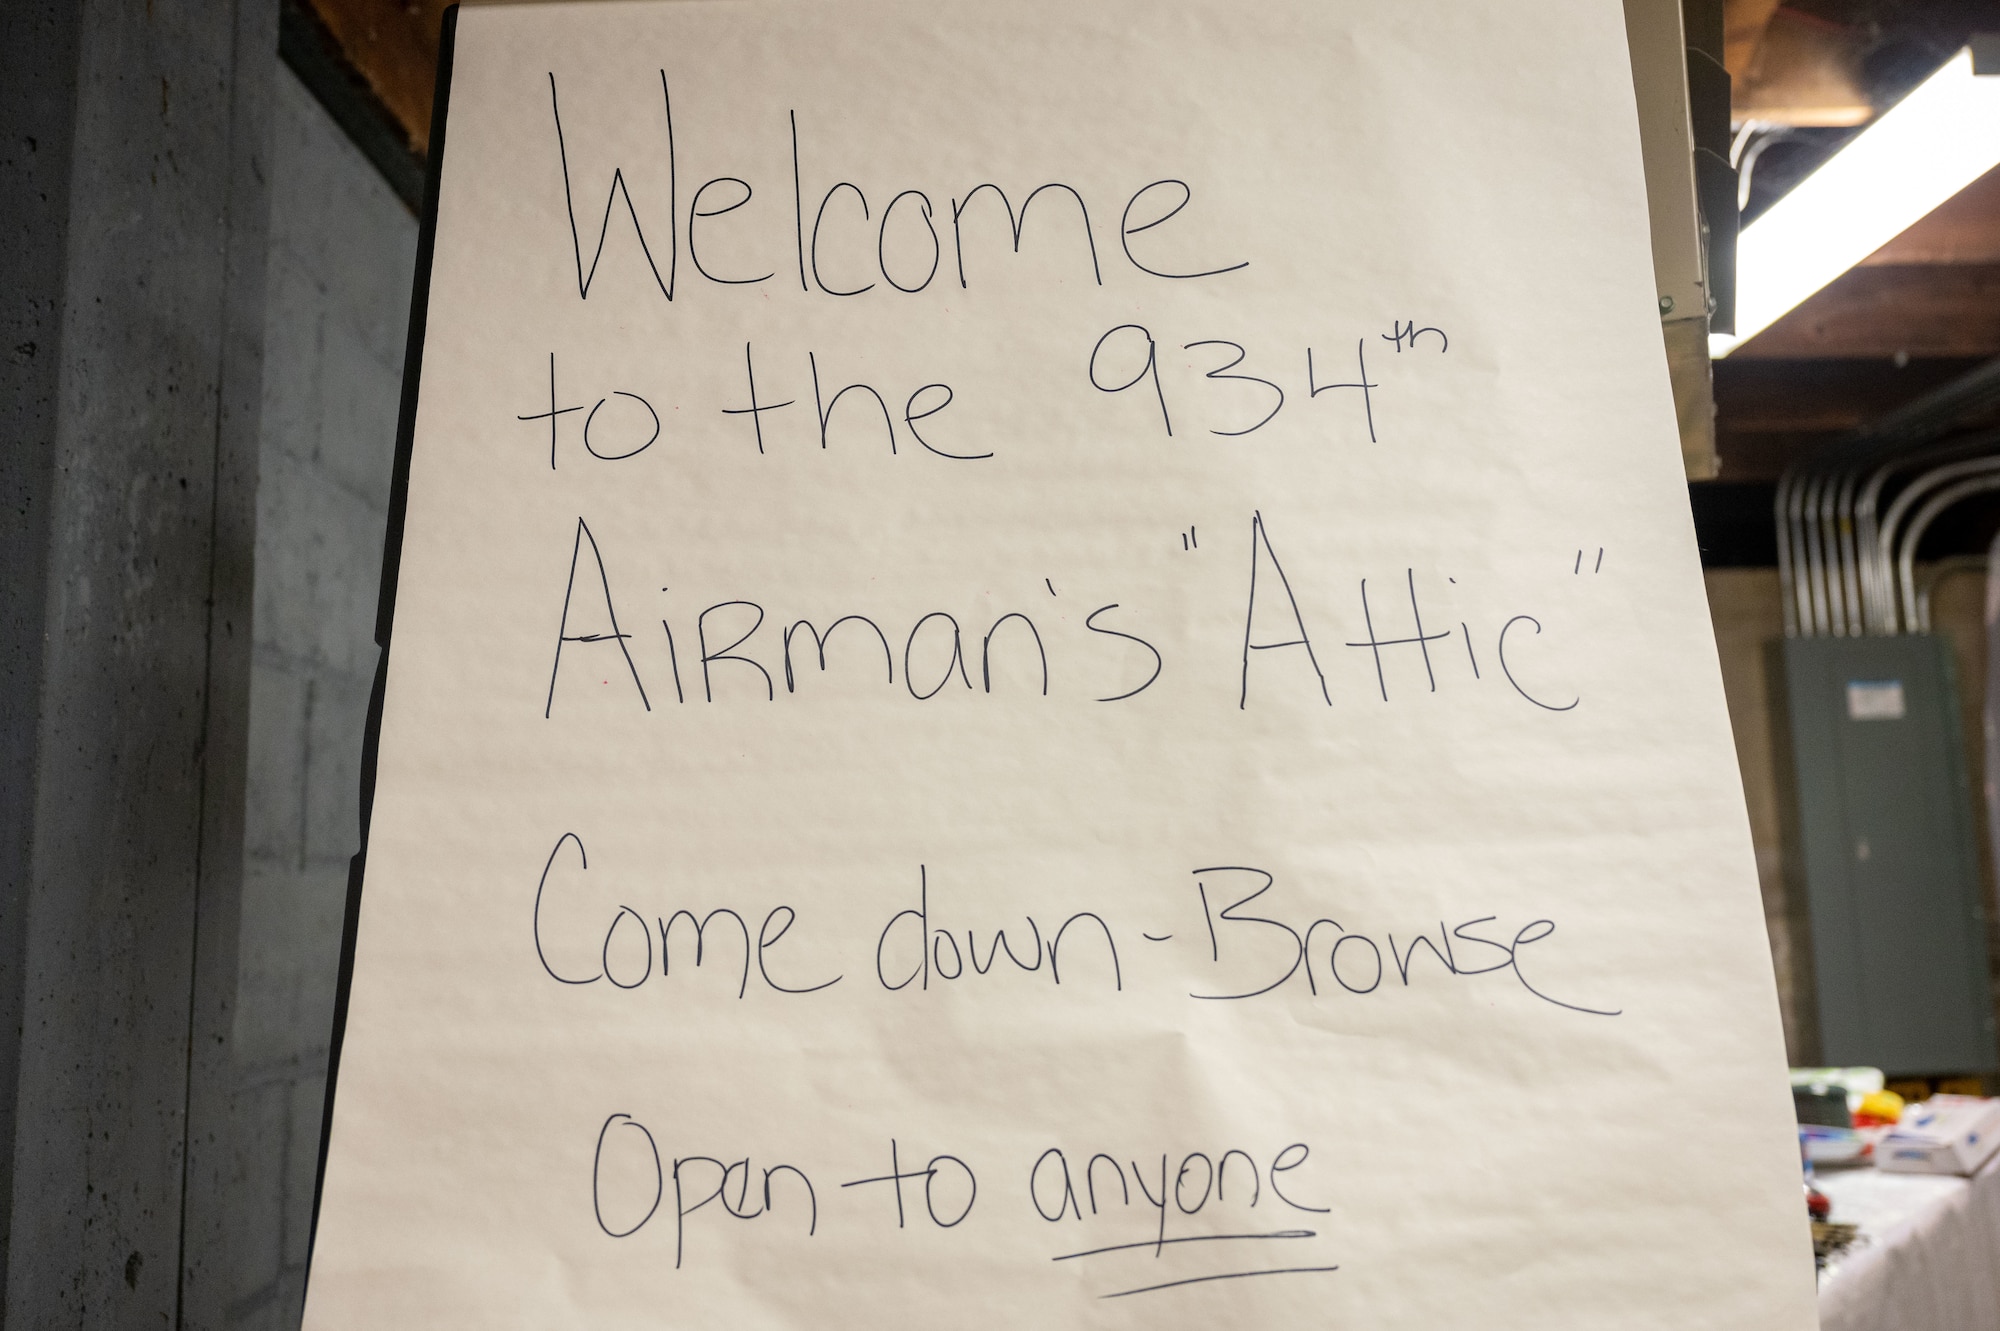 Welcome
to the 934th
Airman's "Attic"
Come down - Browse
Open to anyone